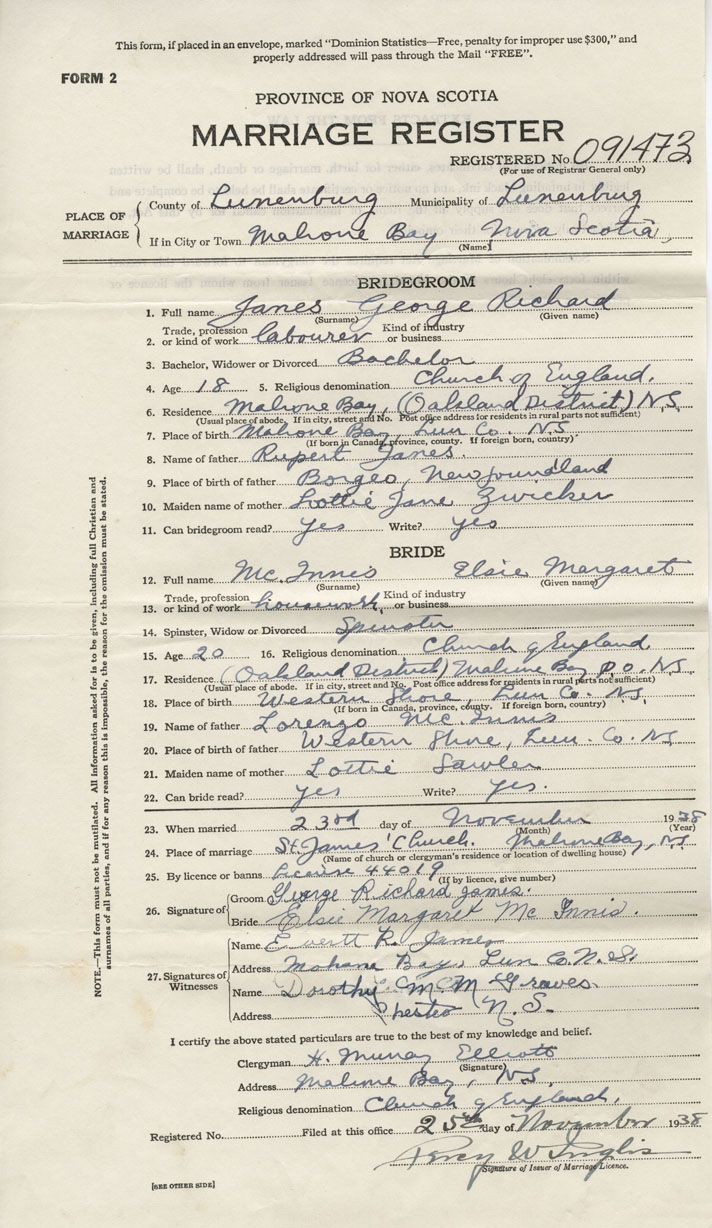 This form, if placed in an envelope, marked "Dominion Statistics—Free, penalty for improper use $300," and
properly addressed will pass through the Mail "FREE".
FORM 2
PROVINCE OF NOVA SCOTIA
MARRIAGE REGISTER
REGISTERED No. 091473
(For use of Registrar General only)
PLACE OF MARRIAGE
County of Lunenburg Municipality of Lunenburg
If in City or Town Mahone Bay Nova Scotia,
(Name)
BRIDEGROOM
1. Full name Janes George Richard
(Surname) (Given name)
2. Trade, profession or kind of work labourer Kind of industry or business
3. Bachelor, Widower or Divorced Bachelor
4. Age 18 5. Religious denomination Church of England.
6. Residence Mahone Bay, (Oakland District) N.S.
(Usual place of abode. If in city, street and No. Post office address for residents in rural parts not sufficient)
7. Place of birth Mahone Bay, Lun Co. NS
(If born in Canada, province, county. If foreign born, country)
8. Name of father Rupert Janes.
9. Place of birth of father Borgeo, Newfoundland
10. Maiden name of mother Lottie Jane Zwicker
11. Can bridegroom read? yes Write? yes
BRIDE
12. Full name Mc.Innes Elsie Margaret
(Surname) (Given name)
13. Trade, profession or kind of work housework, Kind of industry or business
14. Spinster, Widow or Divorced Spinster
15. Age 20 16. Religious denomination Church of England
17. Residence (Oakland District) Mahone Bay P.O. N.S
(Usual place of abode. If in city, street and No. Post office address for residents in rural parts not sufficient)
18. Place of birth Western Shore, Lun Co. NS.
(If born in Canada, province, county. If foreign born, country)
19. Name of father Lorenzo Mc.Innis
20. Place of birth of father Western Shore, Lun. Co. NS
21. Maiden name of mother Lottie Sawler
22. Can bride read? yes Write? yes.
23. When married 23rd day of November 1938
(Month) (Year)
24. Place of marriage St. James' Church. Mahone Bay, N.S
(Name of church or clergyman's residence or location of dwelling house)
25. By licence or banns licence 44019
(If by licence, give number)
26. Signature of
Groom George Richard James.
Bride Elsie Margaret Mc Innis.
27. Signatures of Witnesses
Name Everett R. James
Address Mahone Bay, Lun Co. N.S.
Name Dorothy M Graves.
Address Chester N.S.
I certify the above stated particulars are true to the best of my knowledge and belief.
Clergyman H. Murray Elliott
(Signature)
Address Mahone Bay, NS,
Religious denomination Church of England,
Registered No. Filed at this office 25th day of November 1938
Percy W Inglis
Signature of Issuer of Marriage Licence.
[SEE OTHER SIDE]
NOTE.—This form must not be mutilated. All information asked for is to be given, including full Christian and
surnames of all parties, and if for any reason this is impossible, the reason for the omission must be stated.